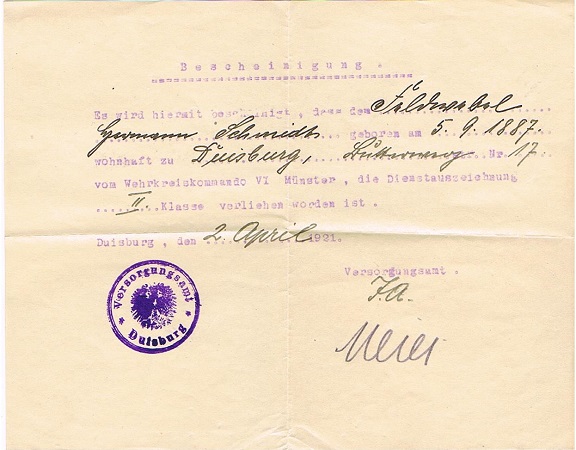 Bescheinigung.
Es wird hiermit bescheinigt, dass dem Feldwebel
Hermann Schmidt geboren am 5.9.1887.
wohnhaft zu Duisburg, Nr 17.
vom Wehrkreiskommando VI Münster, die Dienstauszeichnung
II. Klasse verliehen worden ist.
Duisburg, den 2. April 1921.
Versorgungsamt.
I.A.
Meier
Versorgungsamt
* Duisburg *